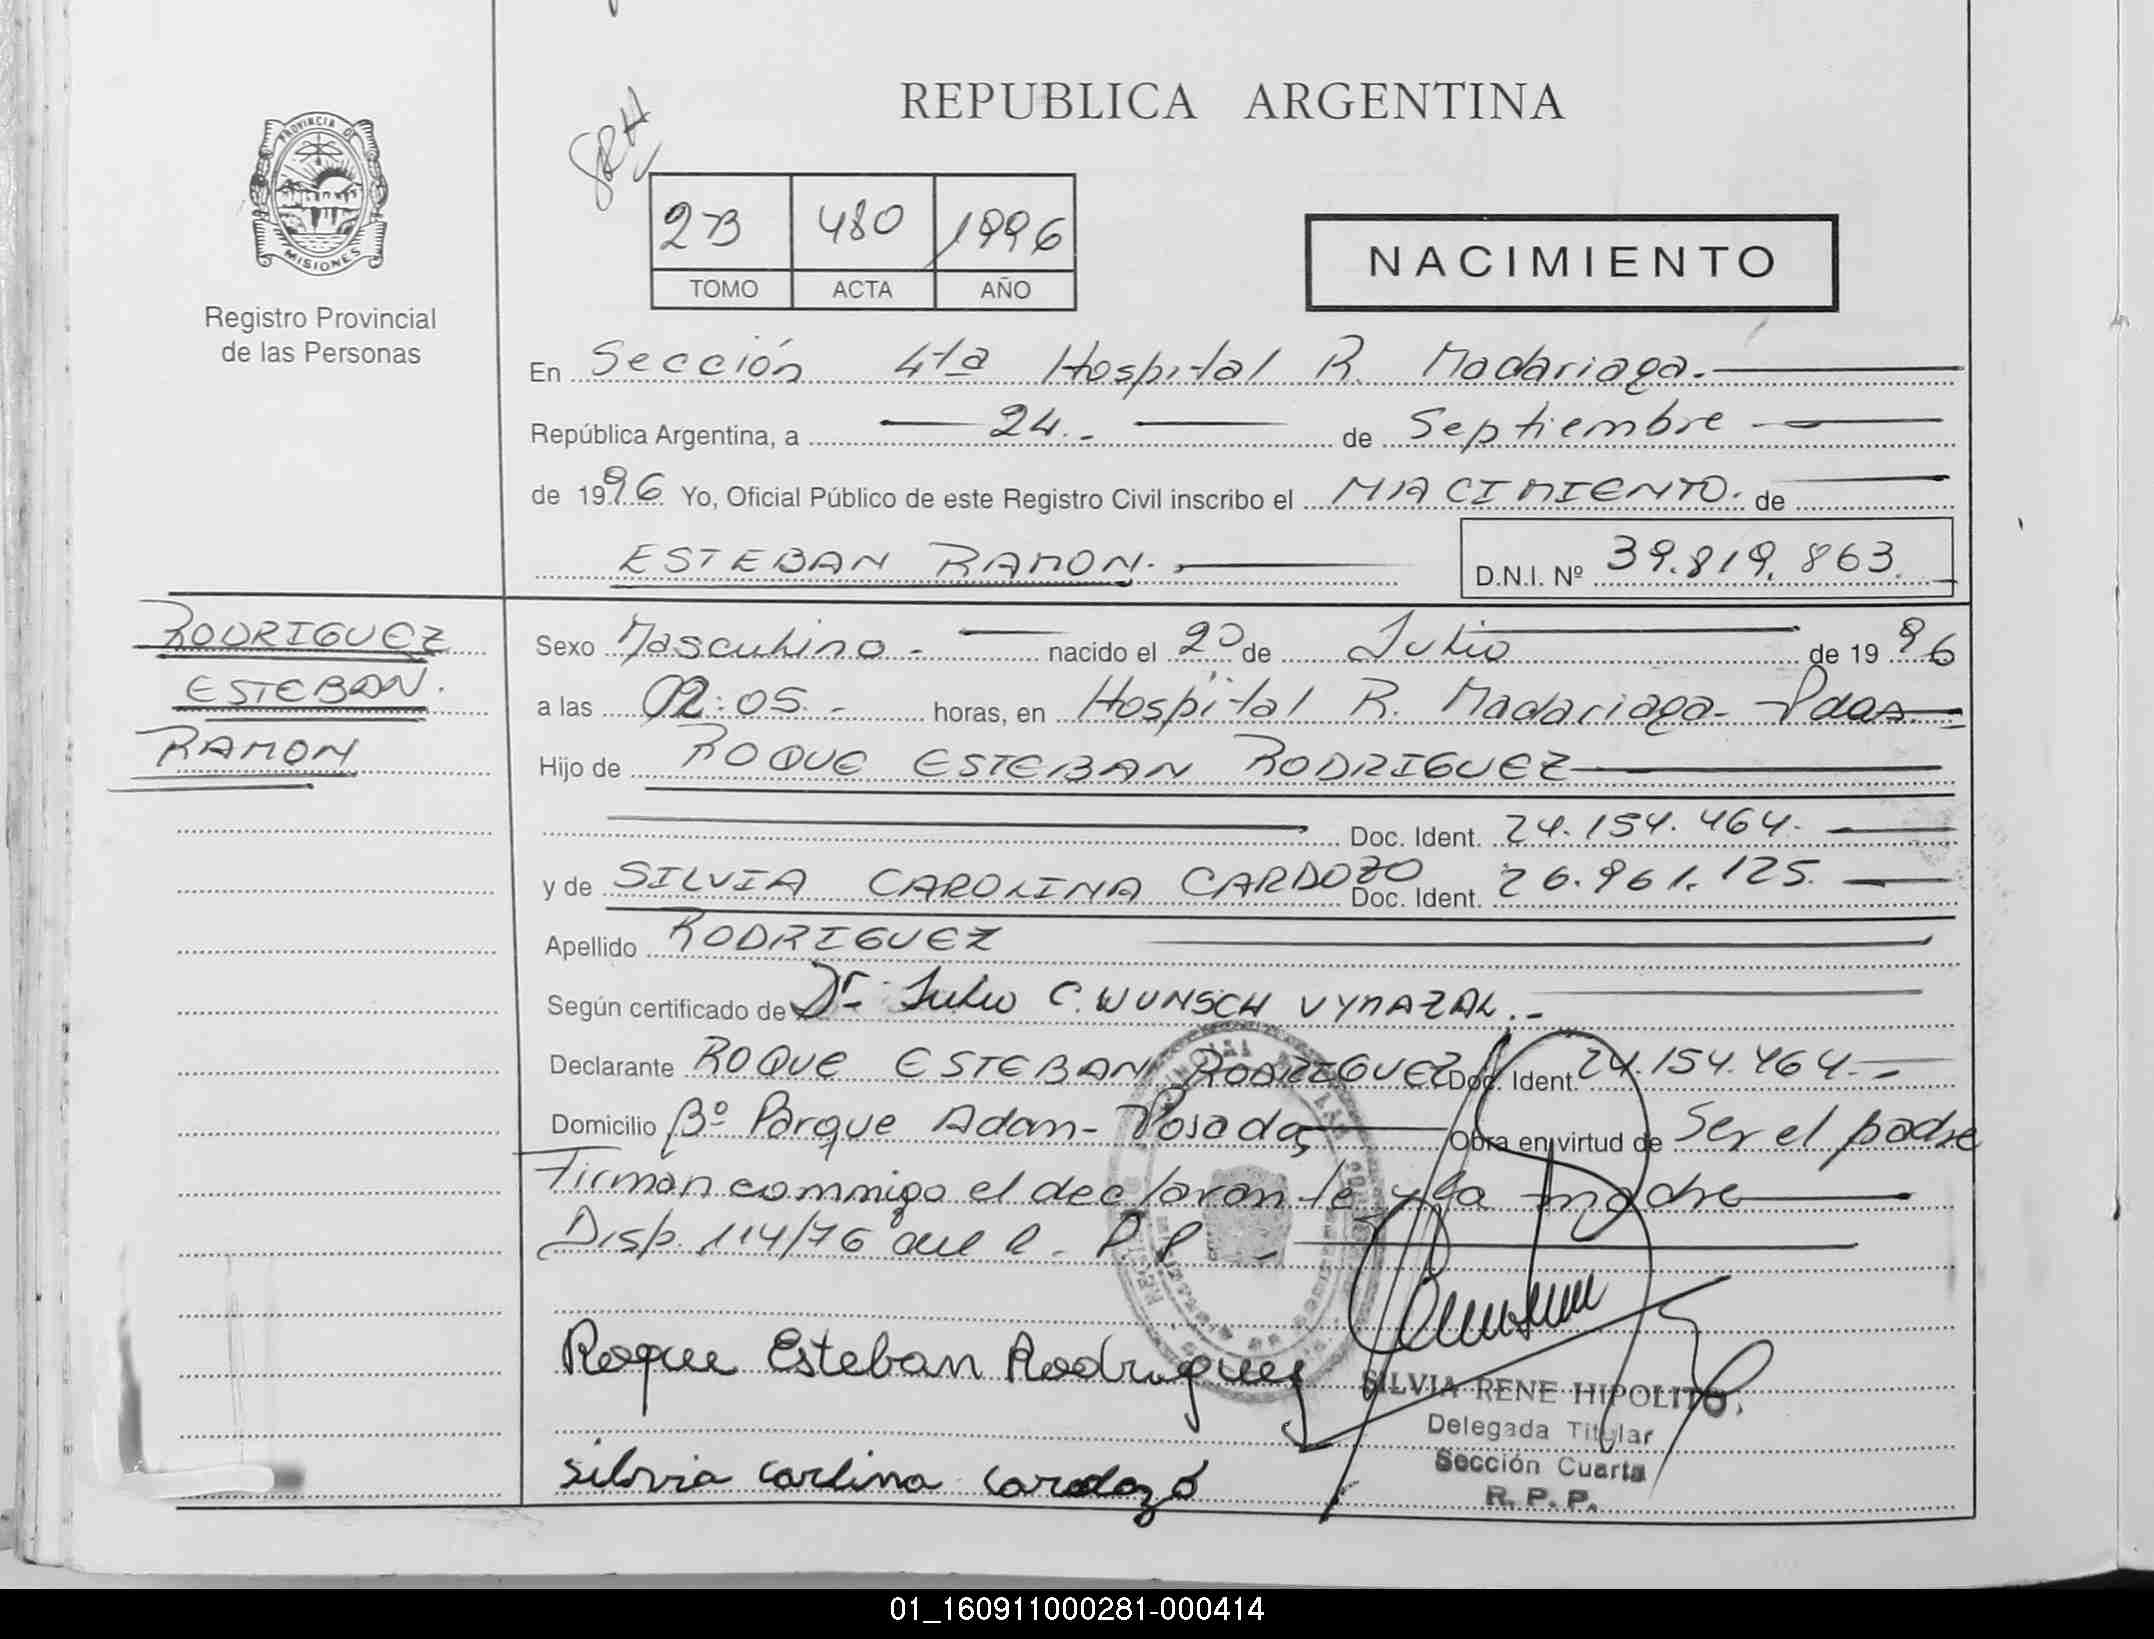 REPUBLICA ARGENTINA
SRH
PROVINCIA DE
MISIONES
Registro Provincial
de las Personas
2B 480 1996
TOMO ACTA AÑO
NACIMIENTO
En Sección 4ta Hospital R. Madariaga.
República Argentina, a 24.- de Septiembre
de 1996 Yo, Oficial Público de este Registro Civil inscribo el NACIMIENTO. de
ESTEBAN RAMON. D.N.I. Nº 39.819.863
RODRIGUEZ
ESTEBAN.
RAMON
Sexo Masculino - nacido el 20 de Julio de 1996
a las 02:05.- horas, en Hospital R. Madariaga- Pdas
Hijo de ROQUE ESTEBAN RODRIGUEZ
Doc. Ident. 24.154.464.
y de SILVIA CAROLINA CARDOZO Doc. Ident. 26.961.125.
Apellido RODRIGUEZ
Según certificado de Dr. Julio C. WUNSCH VYMAZAL.-
Declarante ROQUE ESTEBAN RODRIGUEZ Doc. Ident. 24.154.464.-
Domicilio Bº Parque Adam- Posadas Obra en virtud de Ser el padre
Firman commigo el declarante y la madre
Disp. 114/76 del R.P.P.
Roque Esteban Rodriguez
SILVIA RENE HIPOLITO
Delegada Titular
Sección Cuarta
R. P. P.
silvia carlina cardozo
01_160911000281-000414